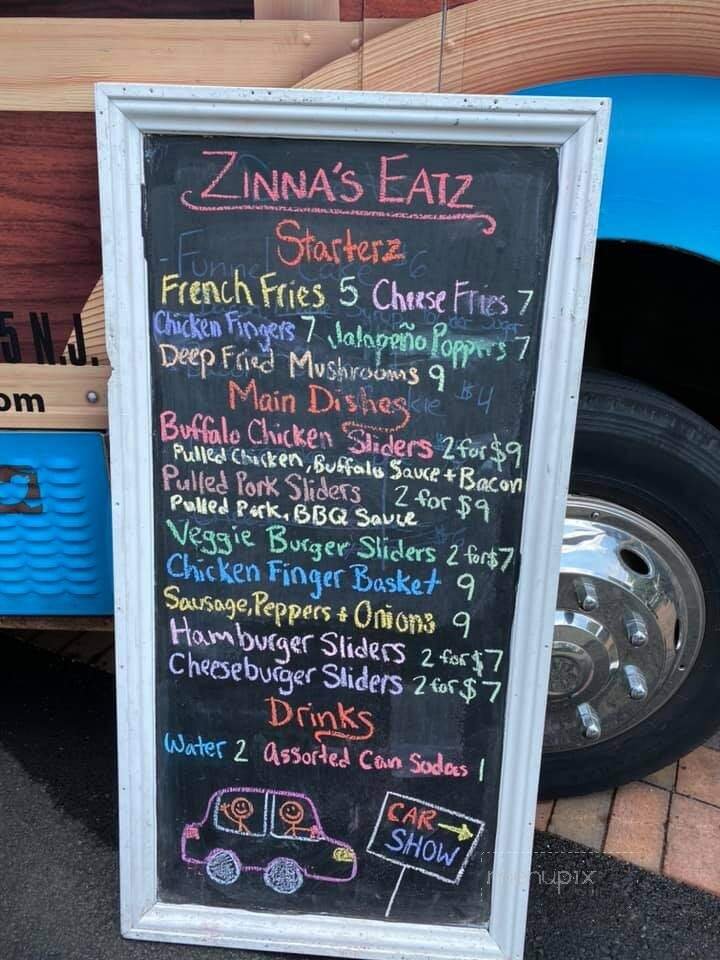 ZINNA'S EATZ
Starterz
French Fries 5 Cheese Fries 7
Chicken Fingers 7 Jalapeño Poppers 7
Deep Fried Mushrooms 9
Main Dishes
Buffalo Chicken Sliders 2 for $9
Pulled Chicken, Buffalo Sauce + Bacon
Pulled Pork Sliders 2 for $9
Pulled Pork, BBQ Sauce
Veggie Burger Sliders 2 for $7
Chicken Finger Basket 9
Sausage, Peppers + Onions 9
Hamburger Sliders 2 for $7
Cheeseburger Sliders 2 for $7
Drinks
Water 2 Assorted Can Sodas 1
CAR
SHOW
5 N.J.
om
menupix